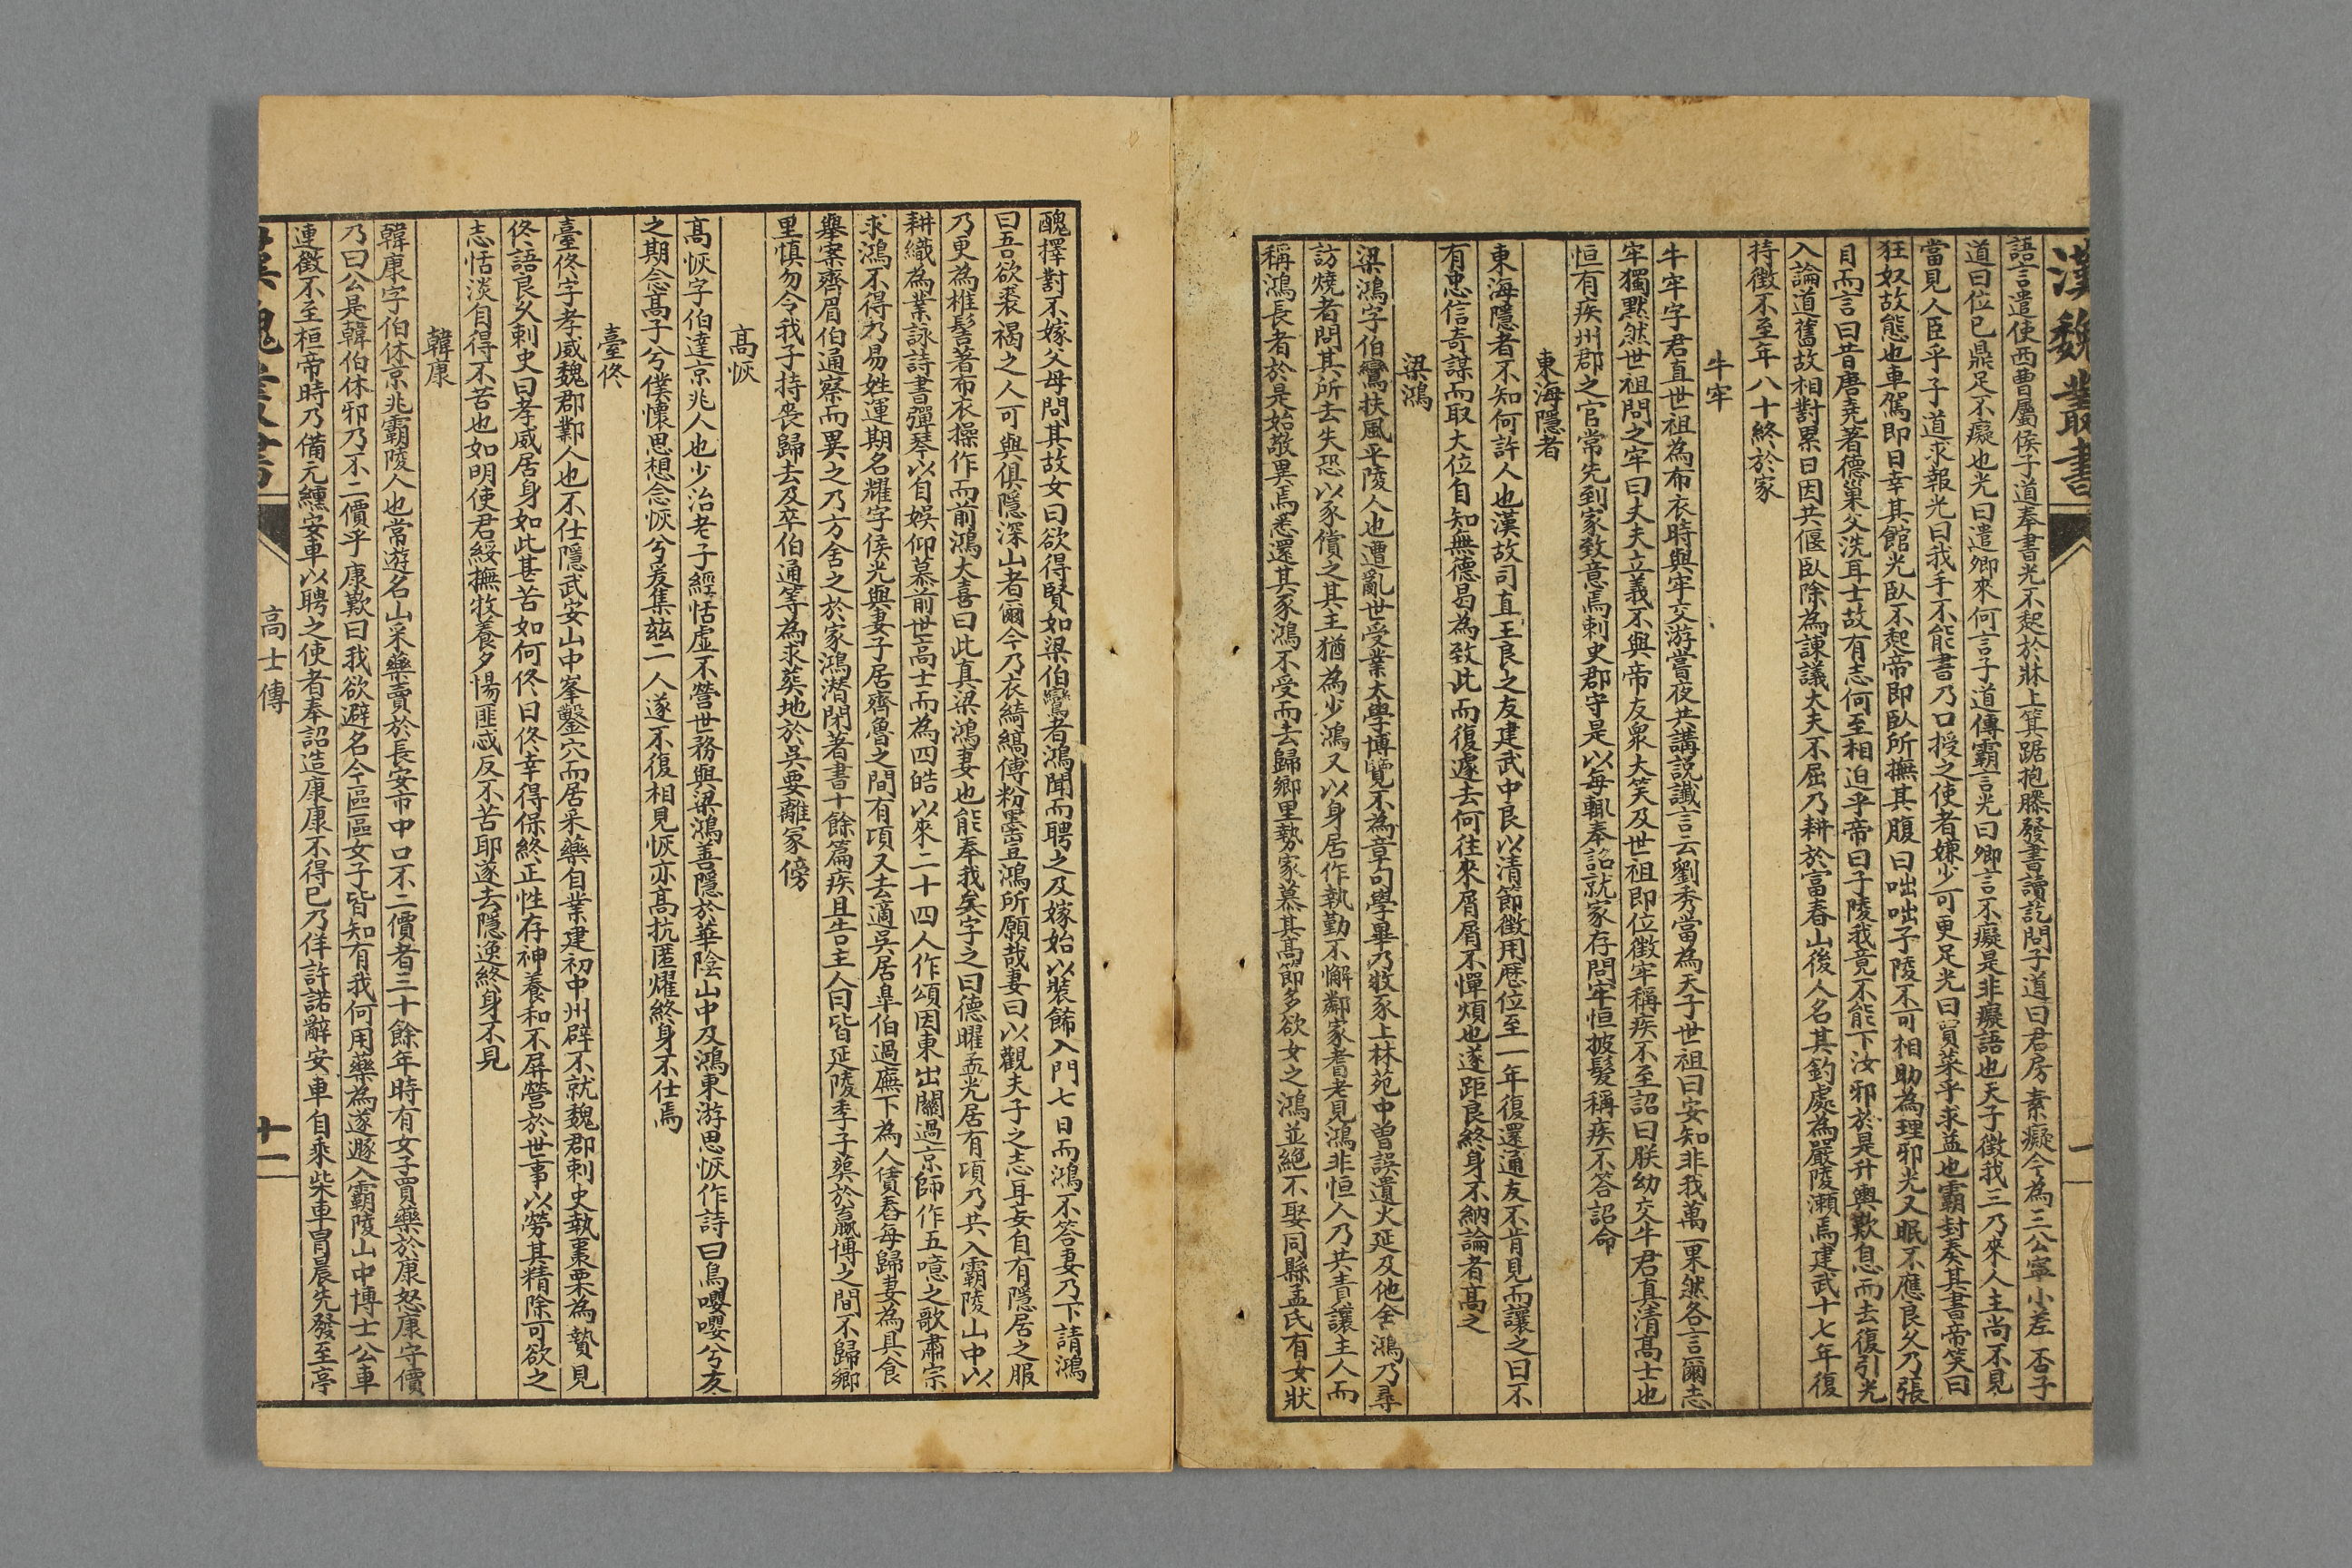 漢魏叢書
語言遣使西曹屬侯子道奉書光不起於牀上箕踞抱膝發書讀訖問子道曰君房素癡今為三公寧小差否子
道曰位已鼎足不癡也光曰遣卿來何言子道傳霸言光曰卿言不癡是非癡語也天子徵我三乃來人主尚不見
當見人臣乎子道求報光曰我手不能書乃口授之使者嫌少可更足光曰買菜乎求益也霸封奏其書帝笑曰
狂奴故態也車駕即日幸其館光臥不起帝即臥所撫其腹曰咄咄子陵不可相助為理邪光又眠不應良久乃張
目而言曰昔唐堯著德巢父洗耳士故有志何至相迫乎帝曰子陵我竟不能下汝邪於是升輿歎息而去復引光
入論道舊故相對累日因共偃臥除為諫議大夫不屈乃耕於富春山後人名其釣處為嚴陵瀨焉建武十七年復
持徵不至年八十終於家
牛牢
牛牢字君直世祖為布衣時與牢交游嘗夜共講說讖言云劉秀當為天子世祖曰安知非我萬一果然各言爾志
牢獨默然世祖問之牢曰丈夫立義不與帝友眾大笑及世祖即位徵牢稱疾不至詔曰朕幼交牛君真清高士也
恒有疾州郡之官常先到家致意焉刺史郡守是以每輒奉詔就家存問牢恒披髮稱疾不答詔命
東海隱者
東海隱者不知何許人也漢故司直王良之友建武中良以清節徵用歷位至一年復還通友不肯見而讓之曰不
有忠信奇謀而取大位自知無德曷為致此而復遽去何往來屑屑不憚煩也遂距良終身不納論者高之
梁鴻
梁鴻字伯鸞扶風平陵人也遭亂世受業太學博覽不為章句學畢乃牧豕上林苑中曾誤遺火延及他舍鴻乃尋
訪燒者問其所去失恐以豕償之其主猶為少鴻又以身居作執勤不懈鄰家耆老見鴻非恒人乃共責讓主人而
稱鴻長者於是始敬異焉悉還其豕鴻不受而去歸鄉里勢家慕其高節多欲女之鴻並絕不娶同縣孟氏有女狀
醜擇對不嫁父母問其故女曰欲得賢如梁伯鸞者鴻聞而聘之及嫁始以裝飾入門七日而鴻不答妻乃下請鴻
曰吾欲裘褐之人可與俱隱深山者爾今乃衣綺縞傅粉墨豈鴻所願哉妻曰以觀夫子之志耳妾自有隱居之服
乃更為椎髻著布衣操作而前鴻大喜曰此真梁鴻妻也能奉我矣字之曰德曜孟光居有頃乃共入霸陵山中以
耕織為業詠詩書彈琴以自娛仰慕前世高士而為四皓以來二十四人作頌因東出關過京師作五噫之歌肅宗
求鴻不得乃易姓運期名耀字侯光與妻子居齊魯之間有頃又去適吳居皋伯過廡下為人賃舂每歸妻為具食
舉案齊眉伯通察而異之乃方舍之於家鴻潛閉著書十餘篇疾且告主人曰昔延陵季子葬於嬴博之間不歸鄉
里慎勿令我子持喪歸去及卒伯通等為求葬地於吳要離冢傍
高恢
高恢字伯達京兆人也少治老子經恬虛不營世務與梁鴻善隱於華陰山中及鴻東游思恢作詩曰鳥嚶嚶兮友
之期念高子兮僕懷思想念恢兮爰集茲二人遂不復相見恢亦高抗匿燿終身不仕焉
臺佟
臺佟字孝威魏郡鄴人也不仕隱武安山中峯鑿穴而居采藥自業建初中州辟不就魏郡刺史執棗栗為贄見
佟語良久刺史曰孝威居身如此甚苦如何佟曰佟幸得保終正性存神養和不屏營於世事以勞其精除可欲之
志恬淡自得不苦也如明使君綏撫牧養夕惕匪忒反不苦耶遂去隱逸終身不見
韓康
韓康字伯休京兆霸陵人也常遊名山采藥賣於長安市中口不二價者三十餘年時有女子買藥於康怒康守價
乃曰公是韓伯休邪乃不二價乎康歎曰我欲避名今區區女子皆知有我何用藥為遂遯入霸陵山中博士公車
連徵不至桓帝時乃備元纁安車以聘之使者奉詔造康康不得已乃佯許諾辭安車自乘柴車冐晨先發至亭
漢魏叢書
高士傳
十二